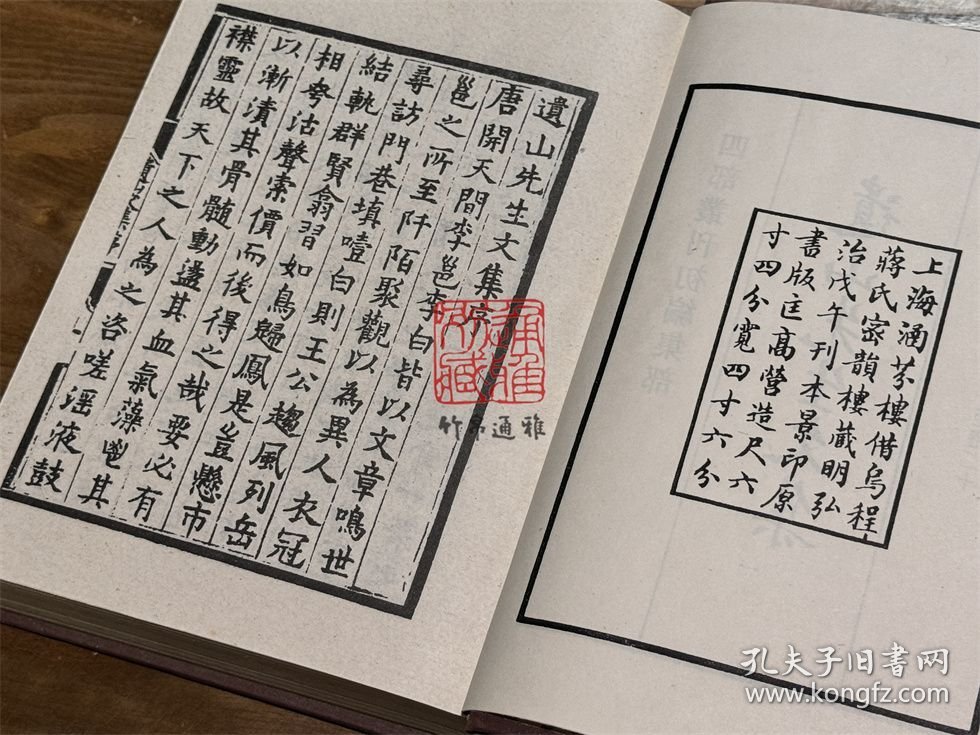 上海涵芬樓借烏程
蔣氏密韻樓藏明弘
治戊午刊本景印原
書版匡高營造尺六
寸四分寬四寸六分
遺山先生文集序
唐開天間李邕李白皆以文章鳴世
邕之所至阡陌聚觀以為異人衣冠
尋訪門巷填噎白則王公趨風列岳
結軌群賢翕習如鳥歸鳳是豈懸市
相夸沽聲索價而後得之哉要必有
以漸漬其骨髓動盪其血氣藻其
襟靈故天下之人為之咨嗟滛液鼓
孔夫子旧书网
www.kongfz.com